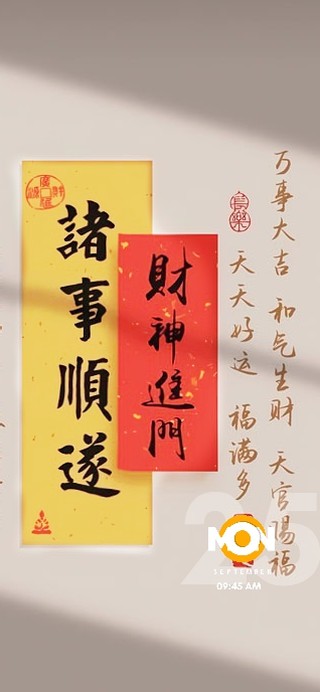 諸事順遂
財神進門
万事大吉 和气生财 天官赐福
天天好运 福满多
25
MON
SEPTEMBER
09:45 AM